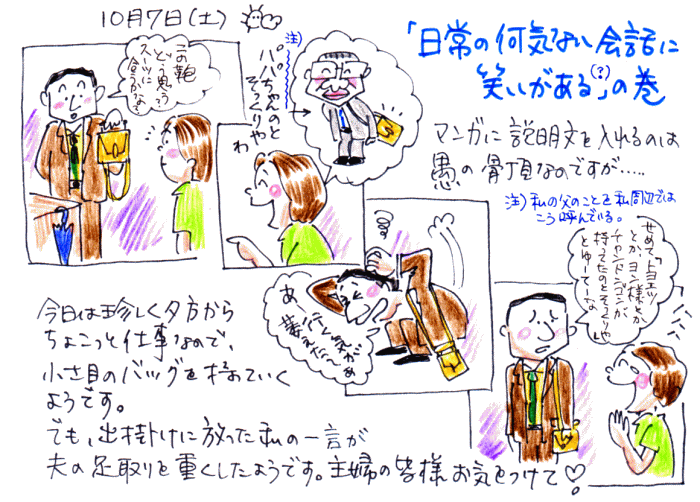 10月7日(土)
「日常の何気ない会話に
笑いがある(?)」の巻
マンガに説明文を入れるのは
愚の骨頂なのですが……
注)私の父のことを私周辺では
こう呼んでいる。
この鞄
どう思う
スーツに
合うかな
注)
パパちゃんのと
そっくりやわ
あー
せめて「上田ェッ
とか、ヨン様とか
チャンドンゴンが
持ってたのとそっくりや
とゆーてーな
今日は珍しく夕方から
ちょこっと仕事なので、
小さ目のバッグを持っていく
ようです。
でも、出掛けに放った私の一言が
夫の足取りを重くしたようです。主婦の皆様お気をつけて♡